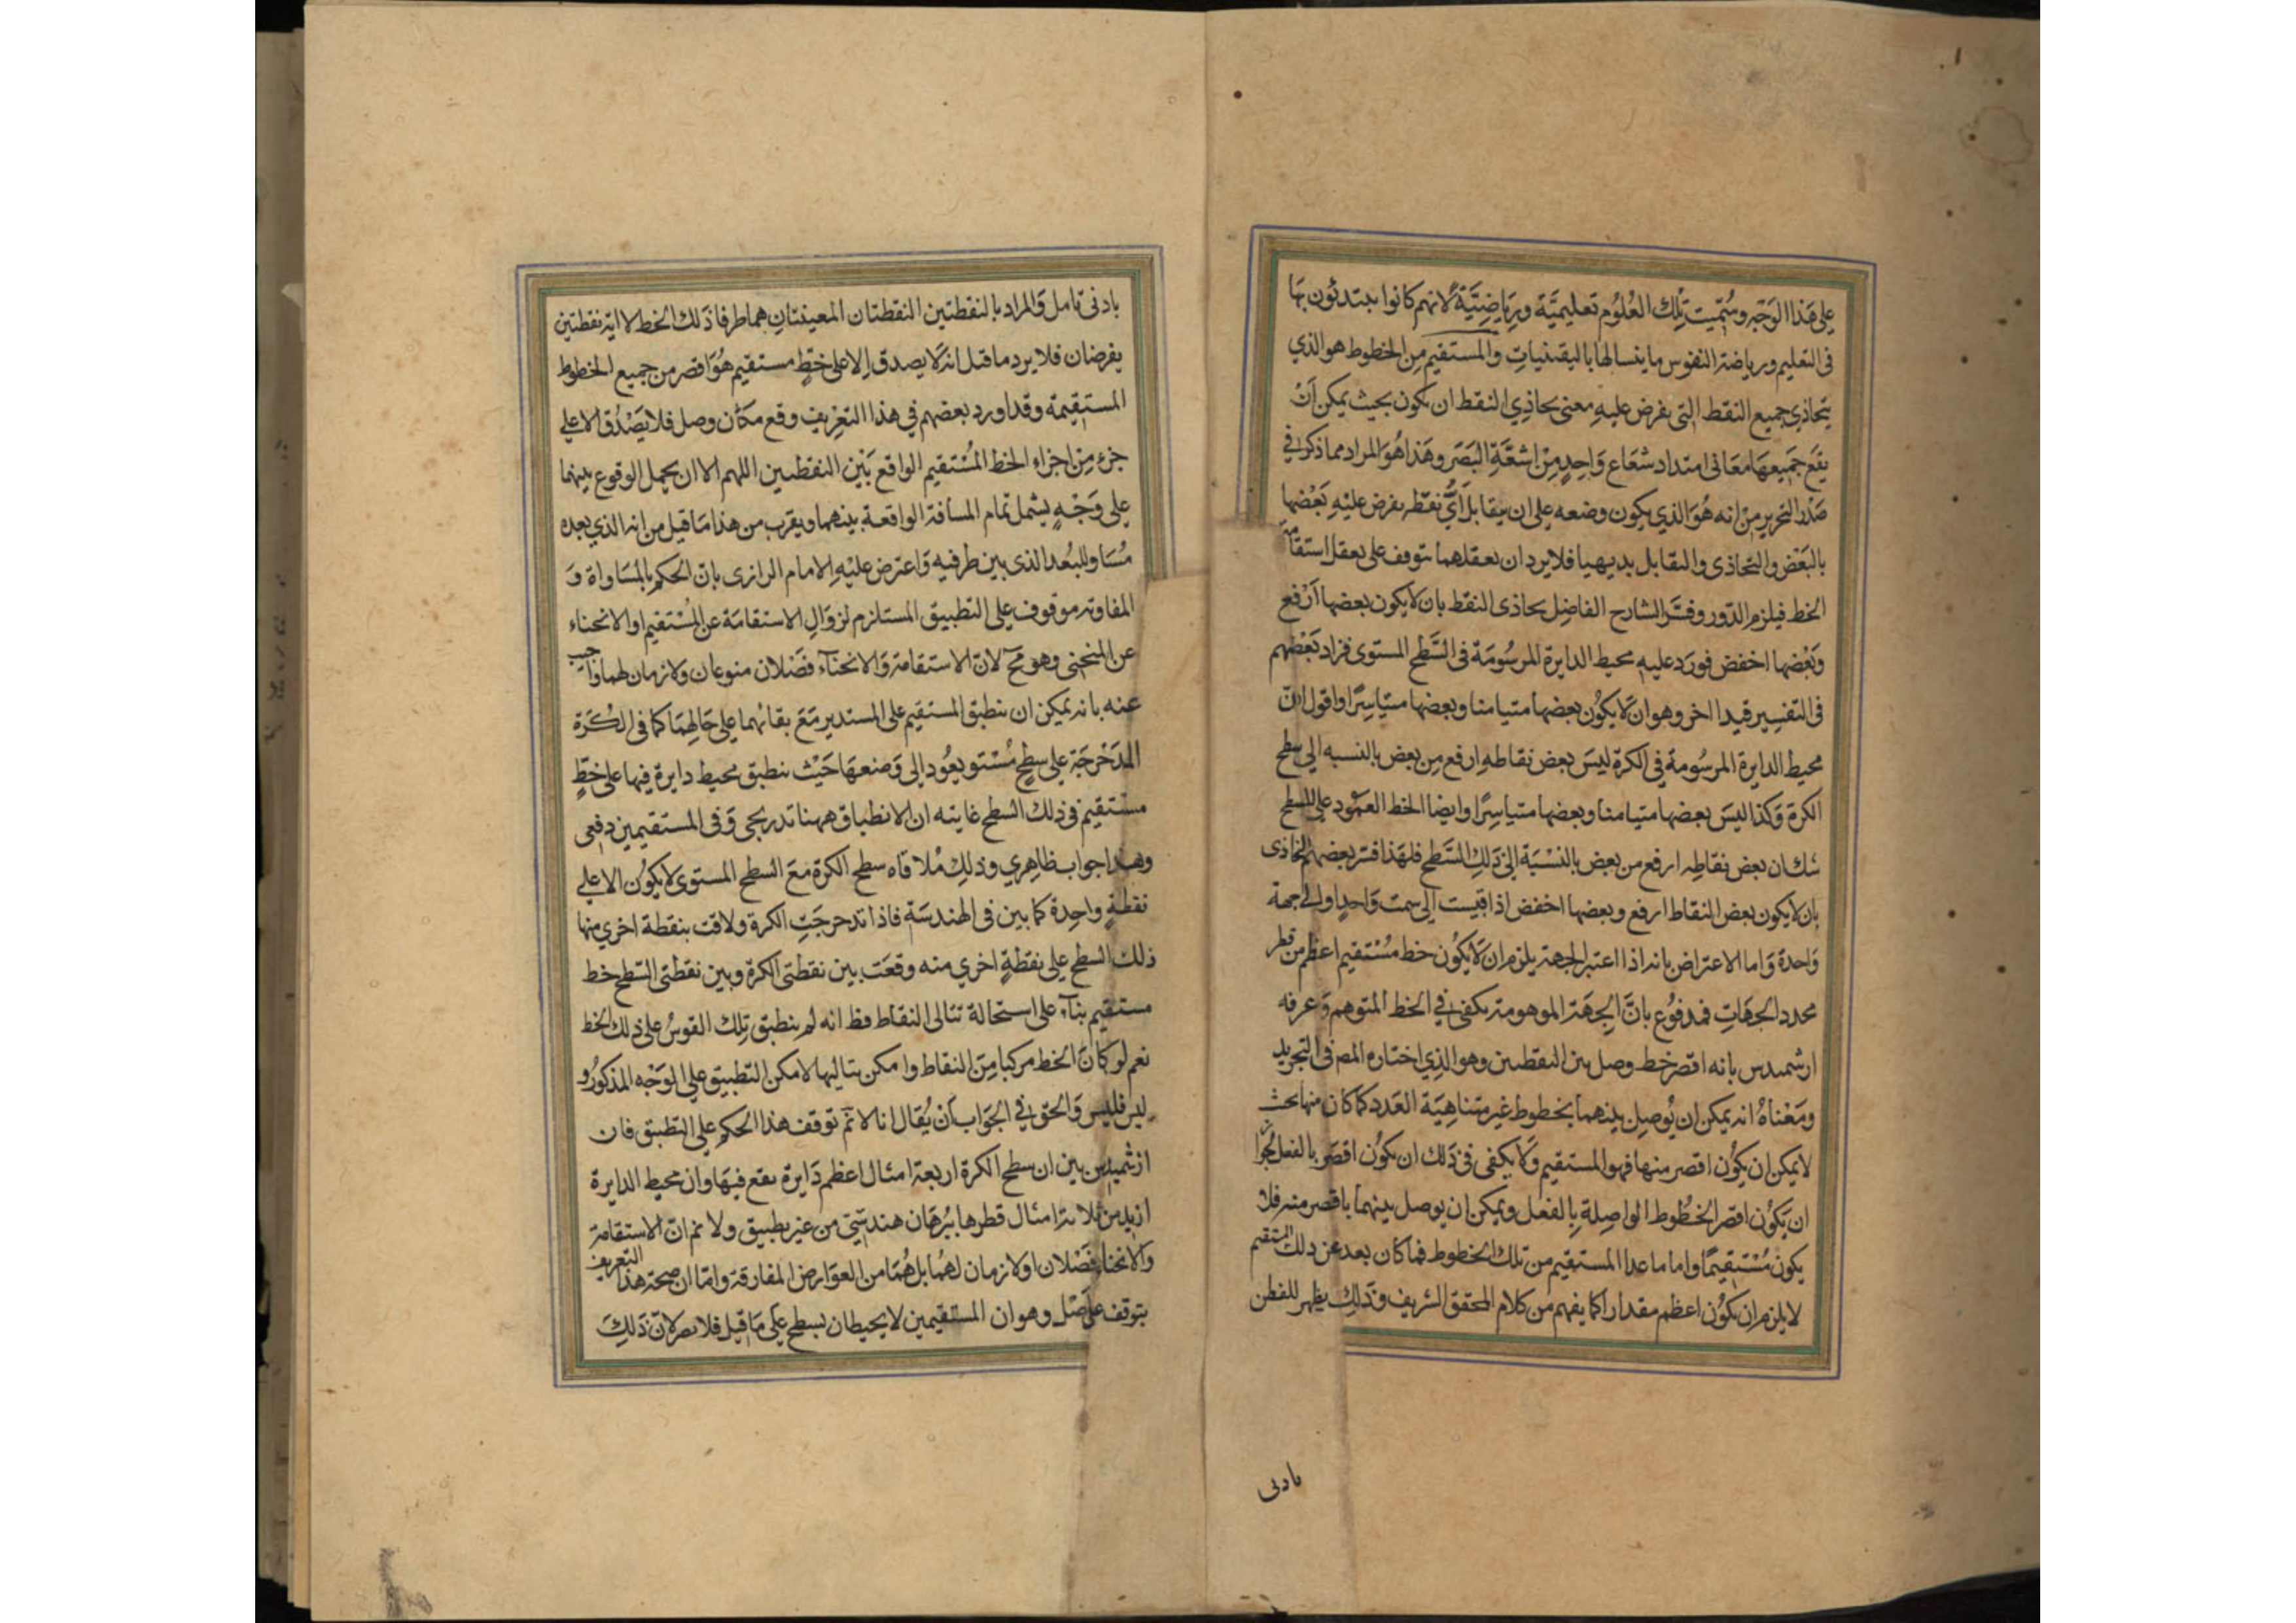 على هذا الوجه وسميت تلك العلوم تعليمية ورياضية لانهم كانوا يبتدئون بها
فى التعليم ورياضة النفوس بها باليقينيات والمستقيم من الخطوط هو الذي
يتحاذي جميع النقط التى يفرض عليه معنى تحاذي النقط ان يكون بحيث يمكن ان
يقع جميعها معا فى امتداد شعاع واحد من اشعة البصر وهذا هو المراد مما ذكر فى
صدر التحرير من انه هو الذي يكون وضعه على ان يتقابل اي نقطة يفرض عليه بعضها
بالبعض والتحاذى والتقابل بديهيا فلايرد ان تعقلهما يتوقف على تعقل استقامة
الخط فيلزم الدور وفسر الشارح الفاضل تحاذى النقط بان لايكون بعضها ارفع
وبعضها اخفض فورد عليه محيط الدايرة المرسومة فى السطح المستوى فزاد بعضهم
فى التفسير قيدا اخر وهو ان لايكون بعضها متيامنا وبعضها متياسرا واقول ان
محيط الدايرة المرسومة فى الكرة ليس بعض نقاطه ارفع من بعض بالنسبه الى سطح
الكرة وكذا ليس بعضها متيامنا وبعضها متياسرا وايضا الخط العمود على السطح
شك ان بعض نقاطه ارفع من بعض بالنسبة الى ذلك السطح فلهذا فسر بعضهم التحاذى
بان لايكون بعض النقاط ارفع وبعضها اخفض اذا قيست الى سمت واحد او الى جهة
واحدة واما الاعتراض بانه اذا اعتبر الجهة يلزم ان لايكون خط مستقيم اعظم من قطر
محدد الجهات فمدفوع بان الجهة الموهومة يكفى فى الخط المتوهم وعرفه
ارشميدس بانه اقصر خط وصل بين النقطتين وهو الذي اختاره المص فى التجريد
ومعناه انه يمكن ان يوصل بينهما بخطوط غير متناهية العدد كما كان منها بحيث
لايمكن ان يكون اقصر منها فهو المستقيم ولا يكفى فى ذلك ان يكون اقصر بالفعل لجواز
ان يكون اقصر الخطوط الواصلة بالفعل ويمكن ان يوصل بينهما باقصر منه فلا
يكون مستقيما واما ما عدا المستقيم من تلك الخطوط فما كان بعد عن ذلك المستقيم
لايلزم ان يكون اعظم مقدارا كما يفهم من كلام المحقق الشريف وذلك يظهر للفطن
بادنى
بادنى تامل والمراد بالنقطتين النقطتان المعينتان هما طرفا ذلك الخط لا اية نقطتين
يفرضان فلايرد ما قيل انه لا يصدق الا على خط مستقيم هو اقصر من جميع الخطوط
المستقيمة وقد اورد بعضهم فى هذا التعريف وقع مكان وصل فلا يصدق الا على
جزء من اجزاء الخط المستقيم الواقع بين النقطتين اللهم الا ان يحمل الوقوع بينهما
على وجه يشمل تمام المسافة الواقعة بينهما ويقرب من هذا ما قيل من انه الذي بعده
مساو للبعد الذى بين طرفيه واعترض عليه الامام الرازى بان الحكم بالمساواة و
المفاوتة موقوف على التطبيق المستلزم لزوال الاستقامة عن المستقيم او الانحناء
عن المنحنى وهو مح لان الاستقامة والانحناء فصلان منوعان ولازمان لهما واجيب
عنه بانه يمكن ان ينطبق المستقيم على المستدير مع بقائهما على حالهما كما فى الكرة
المدحرجة على سطح مستو يعود الى وضعها حيث ينطبق محيط دايرة فيها على خط
مستقيم فى ذلك السطح غايته ان الانطباق ههنا تدريجى وفى المستقيمين دفعى
وهذا جواب ظاهري وذلك ملاقاه سطح الكرة مع السطح المستوى لايكون الا على
نقطة واحدة كما بين فى الهندسة فاذا تدحرجت الكرة ولاقت بنقطة اخرى منها
ذلك السطح على نقطة اخري منه وقعت بين نقطتى الكرة وبين نقطتى السطح خط
مستقيم بناء على استحالة تتالى النقاط فظ انه لم ينطبق تلك القوس على ذلك الخط
نعم لو كان الخط مركبا من النقاط وامكن تتاليها لامكن التطبيق على الوجه المذكور و
ليس فليس والحق فى الجواب ان يقال انا لا نم توقف هذا الحكم على التطبيق فان
ارشميدس بين ان سطح الكرة اربعة امثال اعظم دايرة يقع فيها وان محيط الدايرة
ازيد من ثلاثة امثال قطرها ببرهان هندسى من غير تطبيق ولا نم ان الاستقامة
والانحناء فصلان او لازمان لهما بل هما من العوارض المفارقة واما ان صحة هذا التعريف
يتوقف على اصل وهو ان المستقيمين لايحيطان بسطح على ما قيل فلا يضر لان ذلك